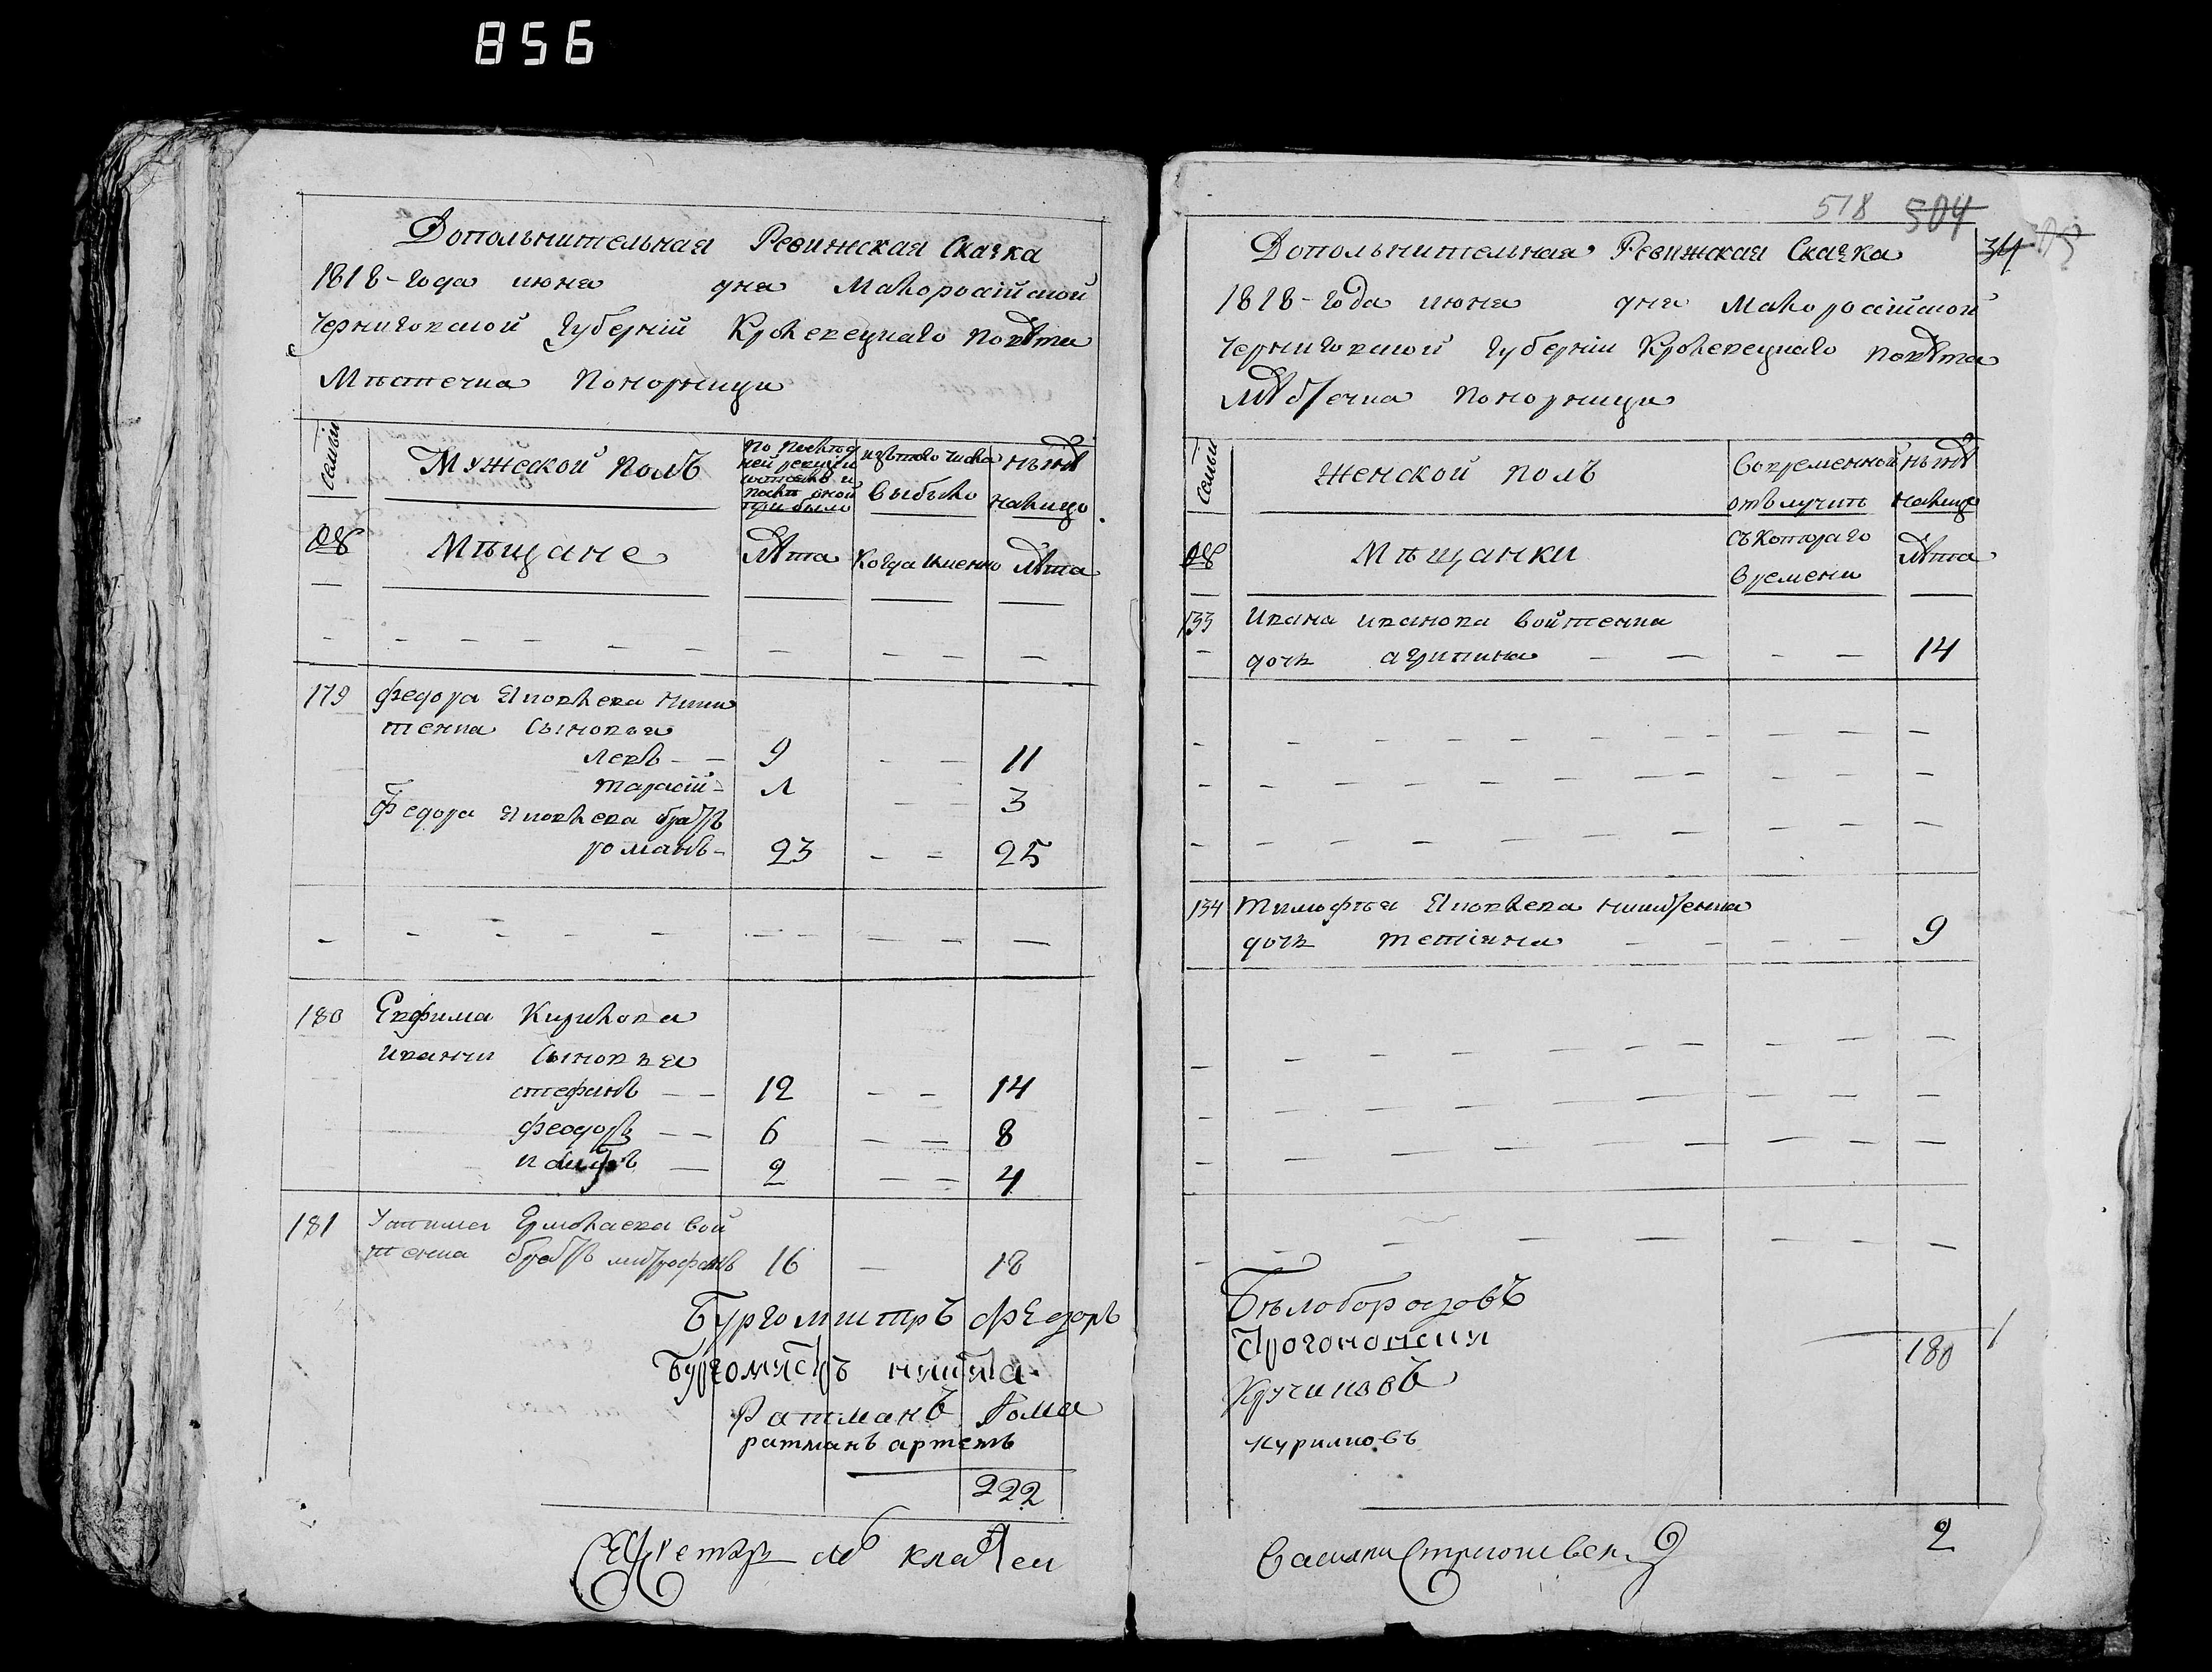 856
Допольнительная Ревижская Сказка
1818-года июня дня Малоросійской
Черниговской Губерніи Кролевецкаго повѣта
Мѣстечка Понорници
семьи
Мужеской полъ
по последней ревизіи состояло и после оной прибыло
изъ того числа выбыло
нынѣ налицо
№
Мѣщане
Лѣта
Когда именно
Лѣта
179 федора Яковлева
тенка Сыновья
левъ 9 11
тарасій 3
Федора Яковлева братъ
романъ 23 25
180 Евфима Кирилова
Сыновья
стефанъ 12 14
феодоръ 6 8
2 4
181 Ермолаева вой
тенка братъ митрофанъ 16 18
Бургомистръ Федоръ
Бургомистръ никита
Ратманъ Рома
ратманъ артемъ
222
518 504
Допольнительная Ревижская Сказка
1818-года июня дня Малоросійской
Черниговской Губерніи Кролевецкаго повѣта
Мѣстечка Понорници
семьи
Женской полъ
Во временной отлучкѣ
нынѣ налицо
№
Мѣщанки
Съ котораго времени
Лѣта
133 Ивана иванова войтенка
дочь агрипина 14
134 Тимофея Яковлева
дочь тетіяна 9
Бѣлобородовъ
180
Кручиновъ
куримовъ
2